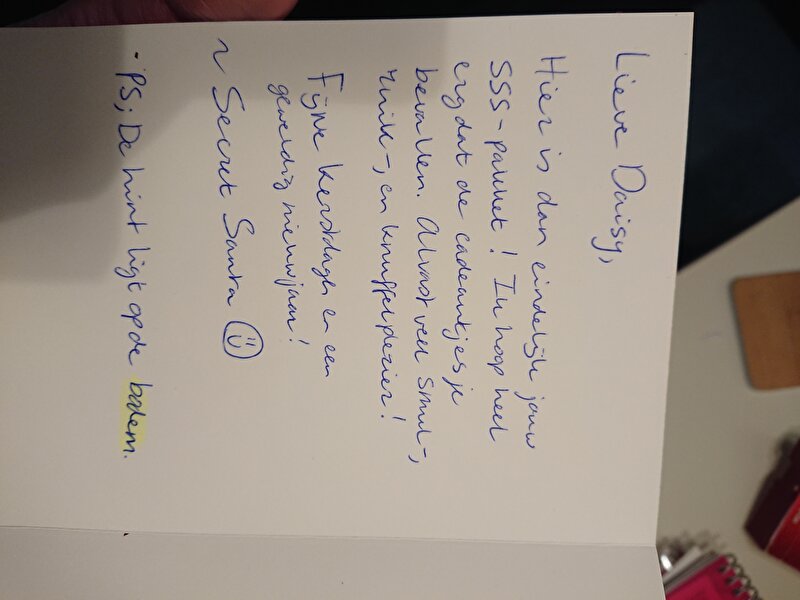 Lieve Daisy,
Hier is dan eindelijk jouw
SSS-pakket! Ik hoop heel
erg dat de cadeautjes je
bevallen. Alvast veel smul-,
ruik-, en knuffelplezier!
Fijne kerstdagen en een
geweldig nieuwjaar!
~ Secret Santa
• PS; De hint ligt op de bodem.